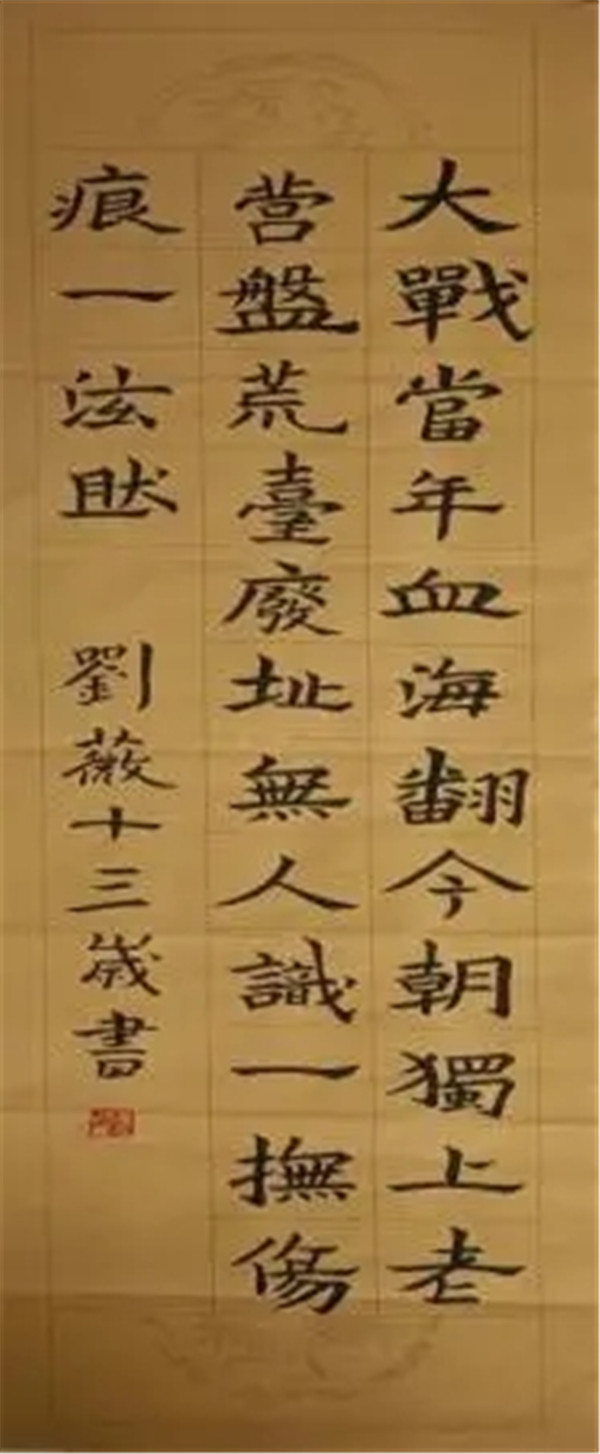 大戰當年血海翻今朝獨上老
營盤荒臺廢址無人識一撫傷
痕一泫然
劉薇十三歲書